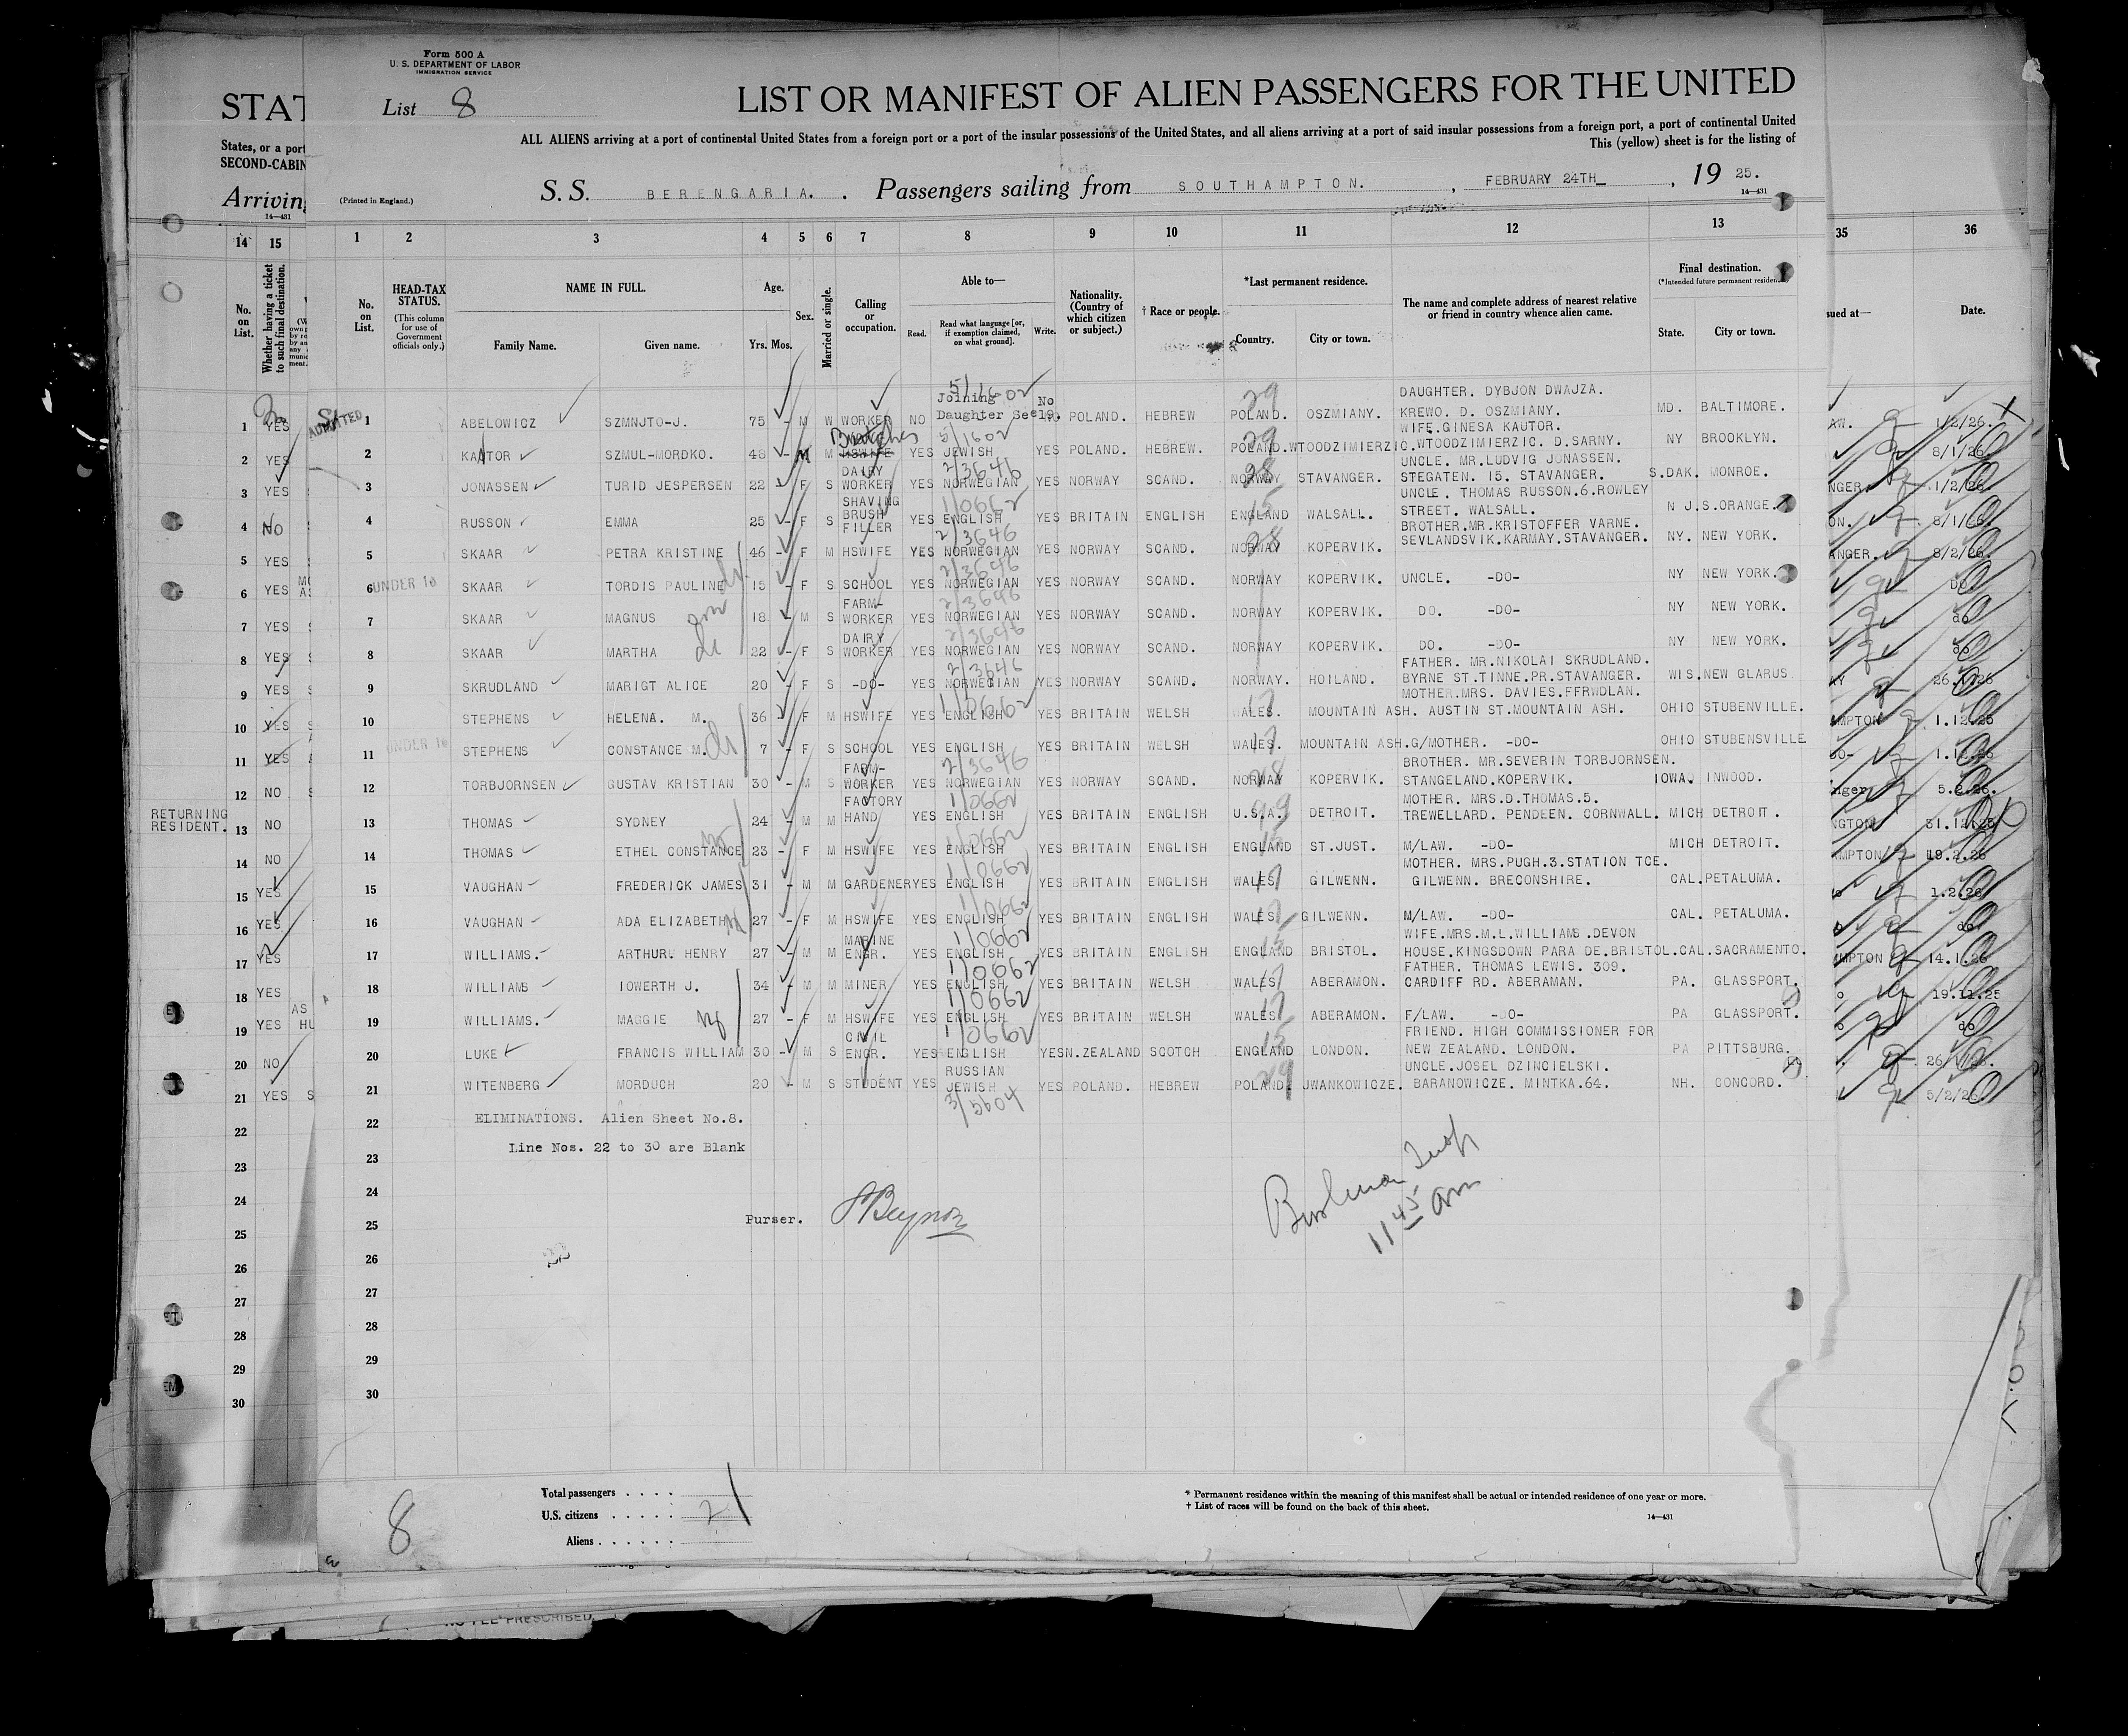 Form 500 A
U. S. DEPARTMENT OF LABOR
IMMIGRATION SERVICE
List 8
LIST OR MANIFEST OF ALIEN PASSENGERS FOR THE UNITED
ALL ALIENS arriving at a port of continental United States from a foreign port or a port of the insular possessions of the United States, and all aliens arriving at a port of said insular possessions from a foreign port, a port of continental United
This (yellow) sheet is for the listing of
STAT
States, or a port
SECOND-CABIN
Arriving
14—431
(Printed in England.)
S. S. BERENGARIA. Passengers sailing from SOUTHAMPTON. , FEBRUARY 24TH , 19 25.
14—431
14 15 1 2 3 4 5 6 7 8 9 10 11 12 13 35 36
No. on List.
Whether having a ticket to such final destination.
No. on List.
HEAD-TAX STATUS. (This column for use of Government officials only.)
NAME IN FULL.
Family Name. Given name.
Age.
Yrs. Mos.
Sex.
Married or single.
Calling or occupation.
Able to—
Read. Read what language [or, if exemption claimed, on what ground]. Write.
Nationality. (Country of which citizen or subject.)
† Race or people.
*Last permanent residence.
Country. City or town.
The name and complete address of nearest relative or friend in country whence alien came.
Final destination.
(*Intended future permanent residence)
State. City or town.
sued at—
Date.
1 YES ADMITTED 1 ABELOWICZ SZMNJTO-J. 75 - M W WORKER NO Joining Daughter See19. No POLAND. HEBREW POLAND. OSZMIANY. DAUGHTER. DYBJON DWAJZA. KREWO. D. OSZMIANY. MD. BALTIMORE. AW. 1/2/26.
2 YES 2 KANTOR SZMUL-MORDKO. 48 - M M HSWIFE Butcher YES JEWISH YES POLAND. HEBREW. POLAND. WTOODZIMIERZIC. WIFE.GINESA KAUTOR. WTOODZIMIERZIC. D.SARNY. NY BROOKLYN. 8/1/26
3 YES 3 JONASSEN TURID JESPERSEN 22 - F S DAIRY WORKER YES NORWEGIAN YES NORWAY SCAND. NORWAY STAVANGER. UNCLE. MR.LUDVIG JONASSEN. STEGATEN. 15. STAVANGER. S.DAK. MONROE. NGER. 1/2/26
4 NO 4 RUSSON EMMA 25 - F S SHAVING BRUSH FILLER YES ENGLISH YES BRITAIN ENGLISH ENGLAND WALSALL. UNCLE. THOMAS RUSSON.6.ROWLEY STREET. WALSALL. N J.S.ORANGE. ON. 8/1/26
5 YES 5 SKAAR PETRA KRISTINE 46 - F M HSWIFE YES NORWEGIAN YES NORWAY SCAND. NORWAY KOPERVIK. BROTHER.MR.KRISTOFFER VARNE. SEVLANDSVIK.KARMAY.STAVANGER. NY. NEW YORK. ANGER. 8/2/26.
6 YES 6 UNDER 16 SKAAR TORDIS PAULINE 15 - F S SCHOOL YES NORWEGIAN YES NORWAY SCAND. NORWAY KOPERVIK. UNCLE. -DO- NY NEW YORK. DO
7 YES 7 SKAAR MAGNUS 18 - M S FARM-WORKER YES NORWEGIAN YES NORWAY SCAND. NORWAY KOPERVIK. DO. -DO- NY NEW YORK. do
8 YES 8 SKAAR MARTHA 22 - F S DAIRY WORKER YES NORWEGIAN YES NORWAY SCAND. NORWAY KOPERVIK. DO. -DO- NY NEW YORK. do
9 YES 9 SKRUDLAND MARIGT ALICE 20 - F S -DO- YES NORWEGIAN YES NORWAY SCAND. NORWAY. HOILAND. FATHER. MR.NIKOLAI SKRUDLAND. BYRNE ST.TINNE.PR.STAVANGER. WIS.NEW GLARUS
10 YES 10 STEPHENS HELENA. M. 36 - F M HSWIFE YES ENGLISH YES BRITAIN WELSH WALES. MOUNTAIN ASH. MOTHER.MRS. DAVIES.FFRWDLAN. AUSTIN ST.MOUNTAIN ASH. OHIO STUBENVILLE. MPTON 1.12.25
11 YES 11 UNDER 16 STEPHENS CONSTANCE M. 7 - F S SCHOOL YES ENGLISH YES BRITAIN WELSH WALES. MOUNTAIN ASH. G/MOTHER. -DO- OHIO STUBENSVILLE DO-
12 NO 12 TORBJORNSEN GUSTAV KRISTIAN 30 - M S FARM-WORKER YES NORWEGIAN YES NORWAY SCAND. NORWAY KOPERVIK. BROTHER. MR.SEVERIN TORBJORNSEN. STANGELAND.KOPERVIK. IOWA. INWOOD. nger 5.2.26.
RETURNING RESIDENT.
13 NO 13 THOMAS SYDNEY 24 - M M FACTORY HAND YES ENGLISH YES BRITAIN ENGLISH U.S.A. DETROIT. MOTHER. MRS.D.THOMAS.5. TREWELLARD. PENDEEN. CORNWALL. MICH DETROIT. NGTON 31.12.25
14 NO 14 THOMAS ETHEL CONSTANCE 23 - F M HSWIFE YES ENGLISH YES BRITAIN ENGLISH ENGLAND ST.JUST. M/LAW. -DO- MICH DETROIT. MPTON 19.2.26
15 YES 15 VAUGHAN FREDERICK JAMES 31 - M M GARDENER YES ENGLISH YES BRITAIN ENGLISH WALES GILWENN. MOTHER. MRS.PUGH.3.STATION TCE. GILWENN. BRECONSHIRE. CAL.PETALUMA. 1.2.26
16 YES 16 VAUGHAN ADA ELIZABETH 27 - F M HSWIFE YES ENGLISH YES BRITAIN ENGLISH WALES GILWENN. M/LAW. -DO- CAL. PETALUMA. do
17 YES 17 WILLIAMS. ARTHUR. HENRY 27 - M M MARINE ENGR. YES ENGLISH YES BRITAIN ENGLISH ENGLAND BRISTOL. WIFE.MRS.M.L.WILLIAMS.DEVON HOUSE.KINGSDOWN PARA DE.BRISTOL.CAL.SACRAMENTO. MPTON 14.1.26
18 YES 18 WILLIAMS IOWERTH J. 34 - M M MINER YES ENGLISH YES BRITAIN WELSH WALES ABERAMON. FATHER. THOMAS LEWIS. 309. CARDIFF RD. ABERAMAN. PA. GLASSPORT. 19.11.25
19 YES 19 WILLIAMS. MAGGIE 27 - F M HSWIFE YES ENGLISH YES BRITAIN WELSH WALES ABERAMON. F/LAW. -DO- PA GLASSPORT. do
20 NO 20 LUKE FRANCIS WILLIAM 30 - M S CIVIL ENGR. YES ENGLISH YES N.ZEALAND SCOTCH ENGLAND LONDON. FRIEND. HIGH COMMISSIONER FOR NEW ZEALAND. LONDON. PA PITTSBURG.
21 YES 21 WITENBERG MORDUCH 20 - M S STUDENT YES RUSSIAN JEWISH YES POLAND. HEBREW POLAND. JWANKOWICZE. UNCLE.JOSEL DZINCIELSKI. BARANOWICZE. MINTKA.64. NH. CONCORD. 5/2/26
22 22 ELIMINATIONS. Alien Sheet No.8.
23 23 Line Nos. 22 to 30 are Blank
24 24
25 25 Purser.
11 45 am
26 26
27 27
28 28
29 29
30 30
Total passengers . . . .
U.S. citizens . . . . . 21
Aliens . . . . . .
8
* Permanent residence within the meaning of this manifest shall be actual or intended residence of one year or more.
† List of races will be found on the back of this sheet.
14—431